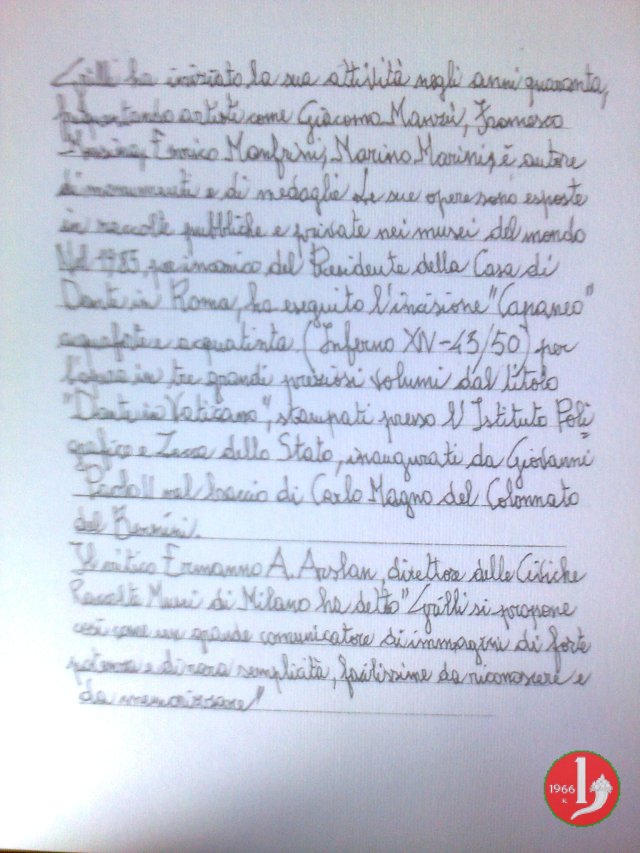 Grilli ha iniziato la sua attività negli anni quaranta,
frequentando artisti come Giacomo Manzú, Francesco
Messina, Enrico Manfrini, Marino Marini, é autore
di monumenti e di medaglie. Le sue opere sono esposte
in raccolte pubbliche e private nei musei del mondo
Nel 1985, per incarico del Presidente della Casa di
Dante in Roma, ha eseguito l'incisione "Capaneo"
acquaforte e acquatinta (Inferno XIV-43/50) per
l'opera in tre grandi preziosi volumi dal titolo
"Dante in Vaticano", stampati presso l'Istituto Poli
grafico e Zecca dello Stato, inaugurati da Giovanni
Paolo II nel braccio di Carlo Magno del Colonnato
del Bernini.
Il critico Ermanno A. Arslan, direttore delle Civiche
Raccolte Musei di Milano ha detto "Grilli si propone
così come un grande comunicatore di immagini di forte
potenza e di rara semplicità, facilissime da riconoscere e
da memorizzare"
1966